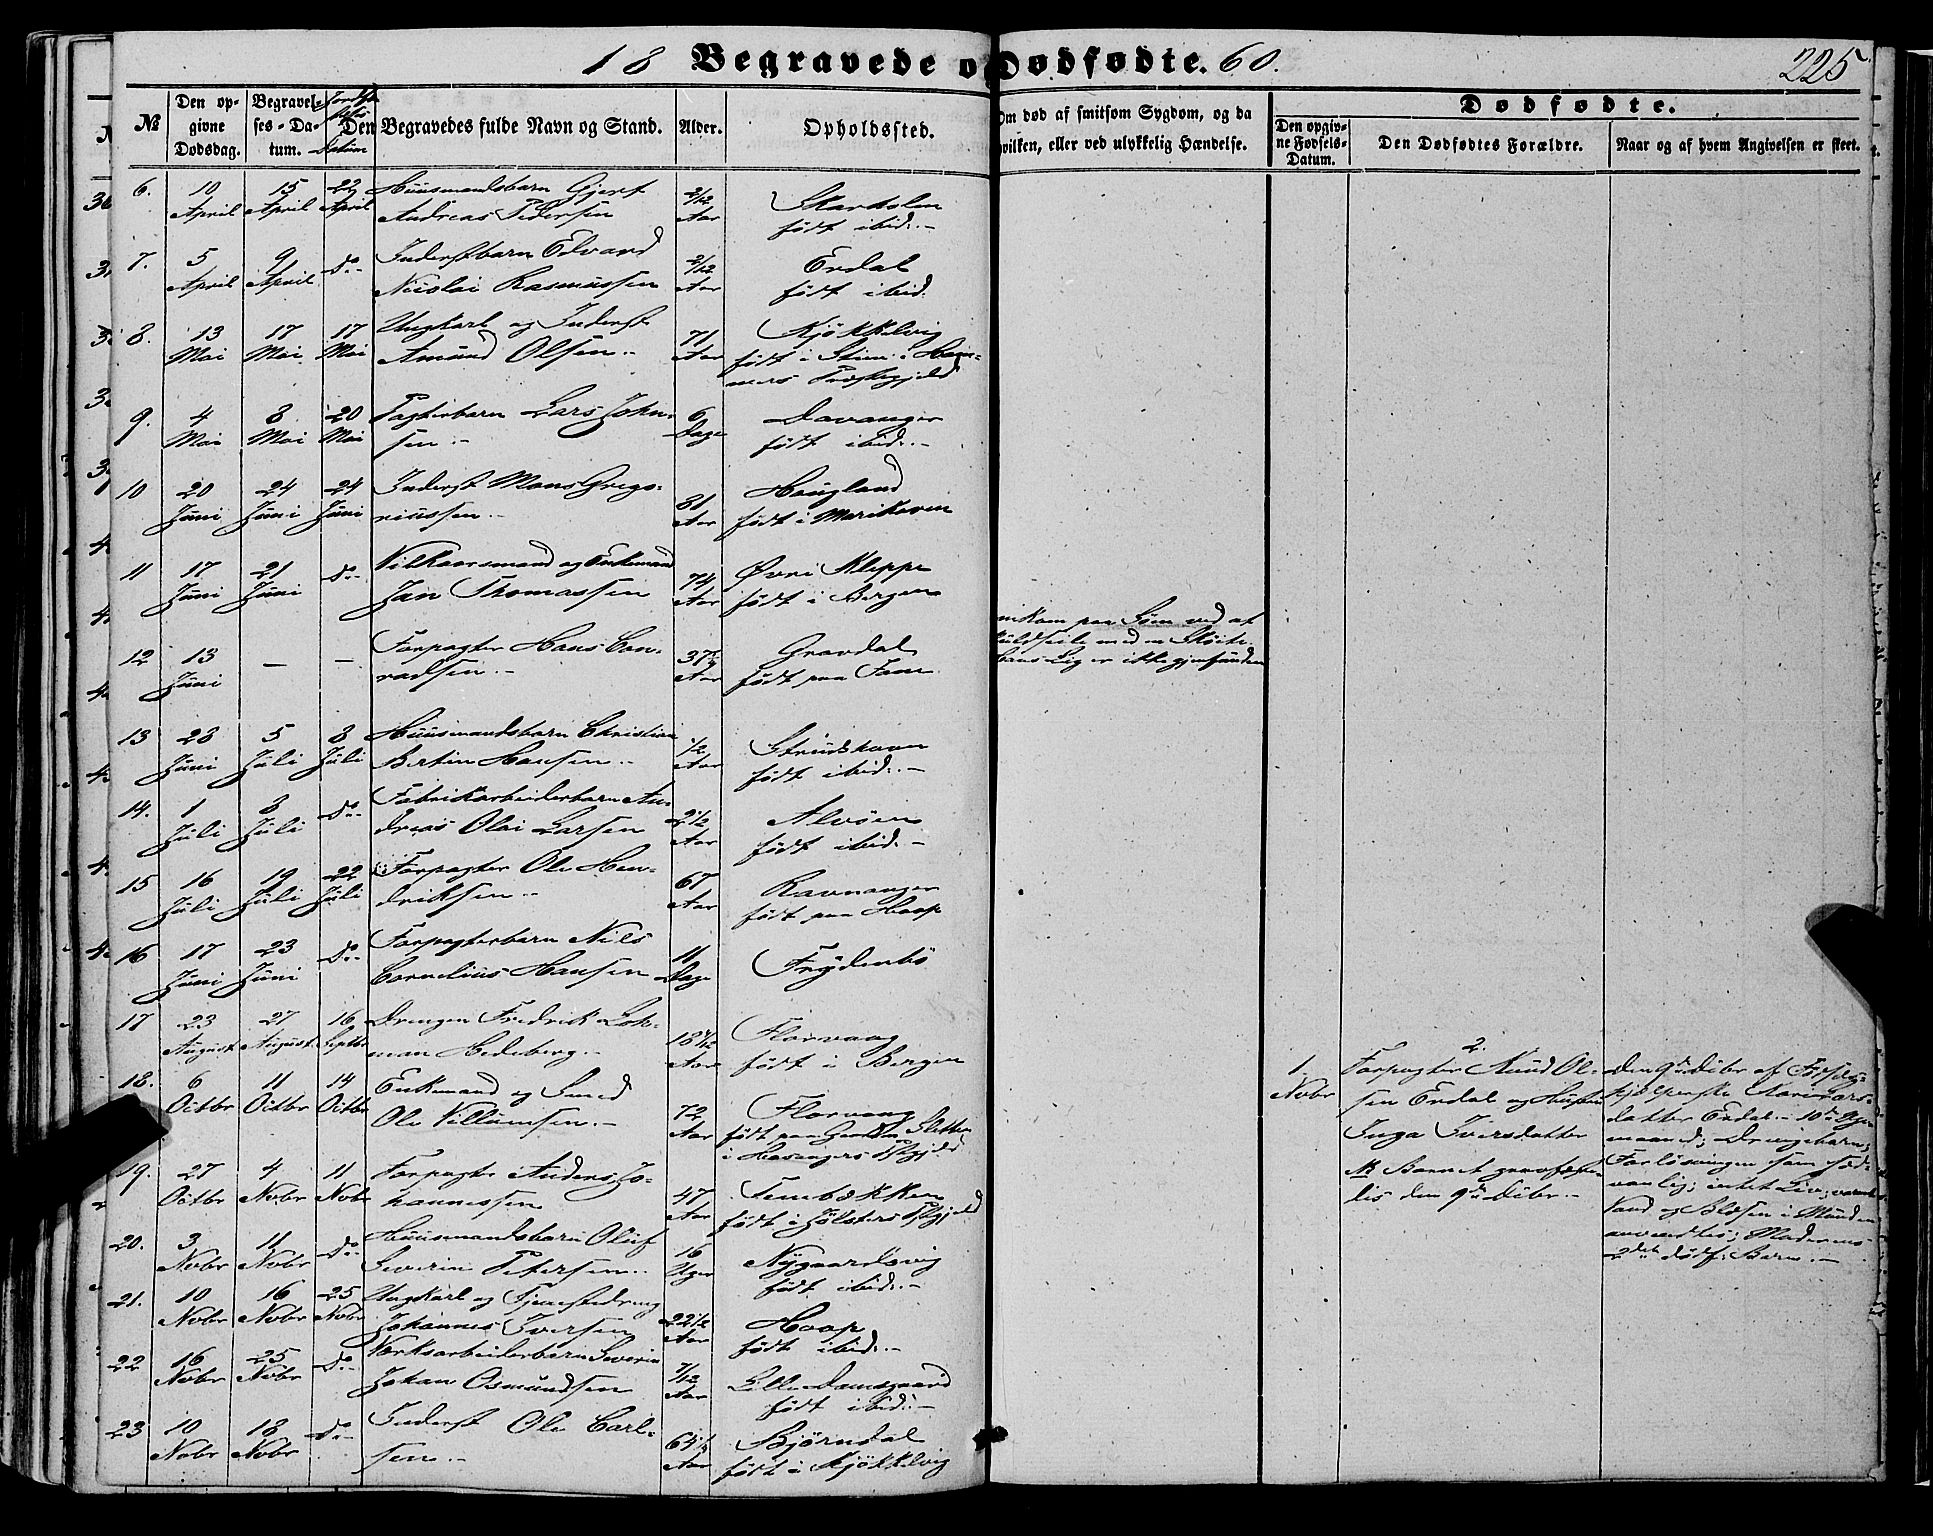 18 Begravede o Dødfødte. 60.
225
№
Den op-
givne
Dødsdag.
Begravel-
ses-Da-
tum.
Datum
Den Begravedes fulde Navn og Stand.
Alder.
Opholdssted.
Om død af smitsom Sygdom, og da
hvilken, eller ved ulykkelig Hændelse.
Dødfødte.
Den opgiv-
ne Fødsels-
Datum.
Den Dødfødtes Forældre.
Naar og af hvem Angivelsen er skeet.
6. 10 April 15 April 22 April Huusmandsbarn Gjert
Andreas Pedersen 2/12 Aar Skarholm
født ibid:–
7. 5 April 9 April Do– Inderstbarn Edvard
Nicolai Rasmussen 2/12 Aar Erdal
født ibid.
8. 13 Mai 17 Mai 17 Mai Ungkarl og Inderst
Amund Olsen.– 71 Aar Kjøkkelvig
født i Stien i Ham-
mers Præstegjeld
9. 4 Mai 8 Mai 20 Mai Pagterbarn Lars John-
sen.– 6 Dage Davanger
født ibid:–
10 20 Juni 24 Juni 24 Juni Inderst Mons Grego-
riussen.– 81 Aar Hougland
født i
11 17 Juni 21 Juni Do– Vilkaarsmand og Enkemand
Jan Thomassen 74 Aar Øvre Kleppe
født i Bergen
12 13 Juni – – Forpagter Hans Con-
radsen.– 37½ Aar Gravdal
født paa Fane
omkom paa Søen ved at
kuldseile med en Skøite.
hans Lig er ikke gjenfunden
13 28 Juni 5 Juli 8 Juli Huusmandsbarn Christian
Bertin Hansen.– ½ Aar Struds havn
født ibid:–
14. 1 Juli 8 Juli Do– Fabrikarbeiderbarn An-
dreas Olai Larsen 2½ Aar Alvøen
født ibid:–
15 16 Juli 19 Juli 22 Juli Forpagter Ole Hen-
driksen.– 67 Aar Ravnanger
født paa Hoop
16 17 Juni 23 Juni Do– Forpagterbarn Nils
Cornelius Hansen 11 Dage Frydenbø
17 23 August 27 August 16 Septbr Drengen Fredrik Loh-
man Hedeberg.– Aar Florvaag
født i Bergen
18. 6 Octbr 11 Octbr 14 Octbr Enkemand og Smed
Ole Villumsen.– 72 Aar Florvaag
født paa Gaarden Sletten
i Hosangers Pgjeld
1. Novbr
2.
Forpagter Knud Ol-
sen Erdal og Hustru
Inga Iversdatter
NB Barnet jordfæste-
des den 9de Decbr.–
Den 9de Decbr af Fødsels-
hjælperske Kari Lars-
datter Erdal.– 10de Uge
maaned; Drengebarn;
Forløsningen som sæd-
vanlig; intet Liv; varmt
Vand og Blæsen i Munden
anvendtes; Moderens
2det dødf: Barn.–
19. 27 Octbr 4 Novbr 11 Novbr Forpagter Anders Jo-
hannessen 47 Aar Tennebækken
født i Jølsters Pgjeld
20. 3 Novbr 11 Novbr Do– Huusmandsbarn Oluf
Severin Petersen.– 16 Uger Nygaardsvig
født ibid:–
21. 10 Novbr 16 Novbr 25 Novbr Ungkarl og Tjenestedreng
Johannes Iversen 22½ Aar Hoop
født ibid:–
22 16 Novbr 25 Novbr Do– Værksarbeiderbarn Severin
Johan Osmundsen 7/12 Aar Lille Damsgaard
født ibid:–
23 10 Novbr 18 Novbr Do– Inderst Ole Carl-
sen.– 64½ Aar Bjørndal
født i Kjøkkelvig